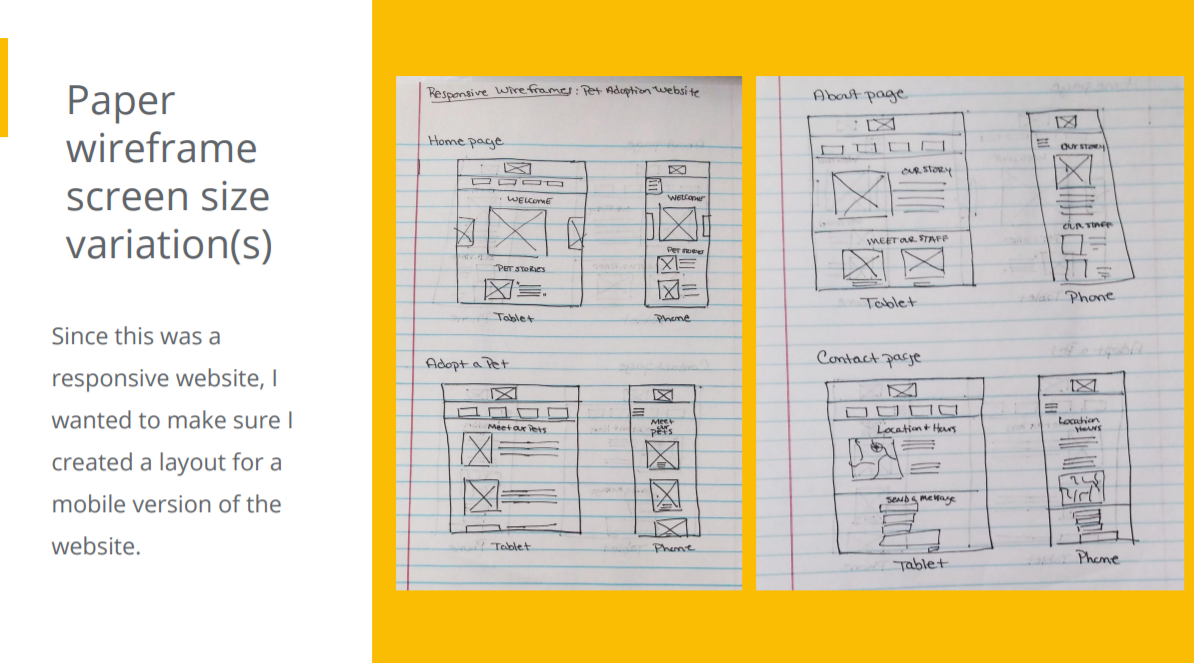 Paper
wireframe
screen size
variation(s)
Since this was a
responsive website, I
wanted to make sure I
created a layout for a
mobile version of the
website.
Responsive Wireframes: Pet Adoption Website
Home page
WELCOME
PET STORIES
Tablet
Welcome
PET STORIES
Phone
Adopt a Pet
Meet our Pets
Tablet
Meet
our
pets
Phone
About page
OUR STORY
MEET OUR STAFF
Tablet
OUR STORY
OUR STAFF
Phone
Contact page
Location + Hours
SEND a message
Tablet
Location
Hours
Phone